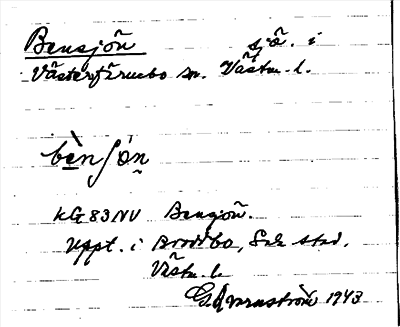 Bensjön sjö. i
Västerfärnebo sn. Västm. l.
bèn ʃön
KG 83 NV Bensjön.
Uppt. i Broddbo, Sala stad.
Västm. l.
G. Qvarnström 1943